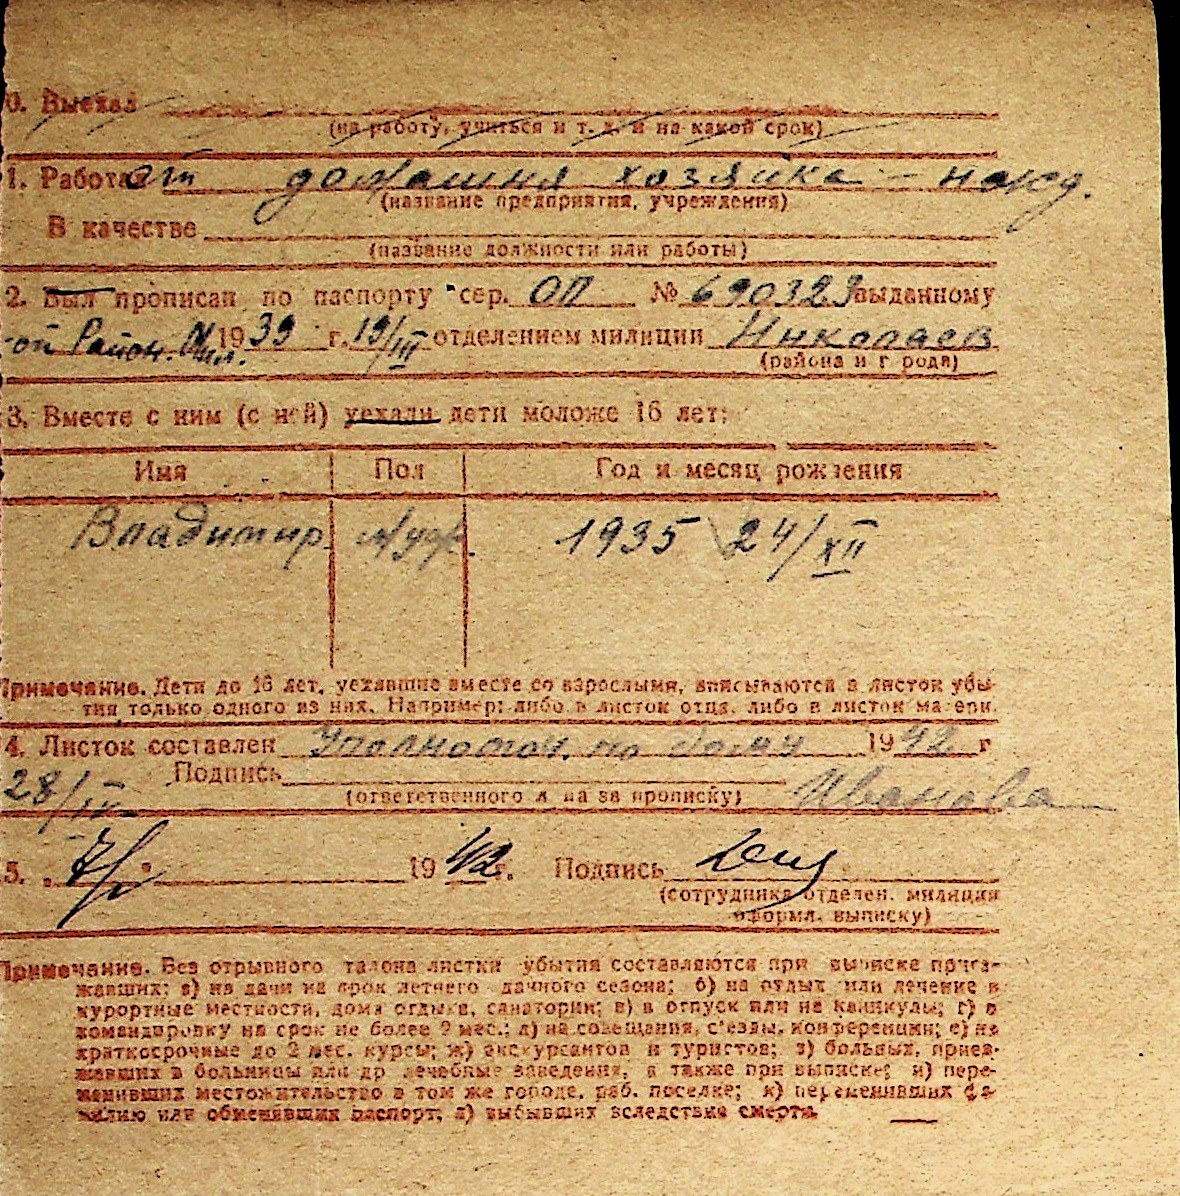 0. Выехал
(на работу, учиться и т. д. и на какой срок)
1. Работает домашня хозяйка - ижд.
(название предприятия, учреждения)
В качестве
(название должности или работы)
2. Был прописан по паспорту сер. ОП № 690329 выданному
-ой Район. 1939 г. 19/III отделением милиции Николаев
(района и города)
3. Вместе с ним (с ней) уехали дети моложе 16 лет:
Имя Пол Год и месяц рождения
Владимир. муж. 1935 24/XII
Примечание. Дети до 16 лет, уехавшие вместе со взрослыми, вписываются в листок убы-
тия только одного из них. Например: либо в листок отца, либо в листок матери.
4. Листок составлен Уполномоч. по дому 1942 г
28/IV Подпись Иванова
(ответственного л ца за прописку)
5. 1942 г. Подпись
(сотрудника отделен. милиции
оформл. выписку)
Примечание. Без отрывного талона листки убытия составляются при выписке приез-
жавших: а) на дачи на срок летнего дачного сезона; б) на отдых или лечение в
курортные местности, дома отдыха, санатории; в) в отпуск или на каникулы; г) в
командировку на срок не более 2 мес.; д) на совещания, с'езды, конференции; е) на
краткосрочные до 2 мес. курсы; ж) экскурсантов и туристов; з) больных, приез-
жавших в больницы или др лечебные заведения, а также при выписке; и) пере-
менивших местожительство в том же городе, раб. поселке; к) переменивших фа-
милию или обменявших паспорт; л) выбывших вследствие смерти.